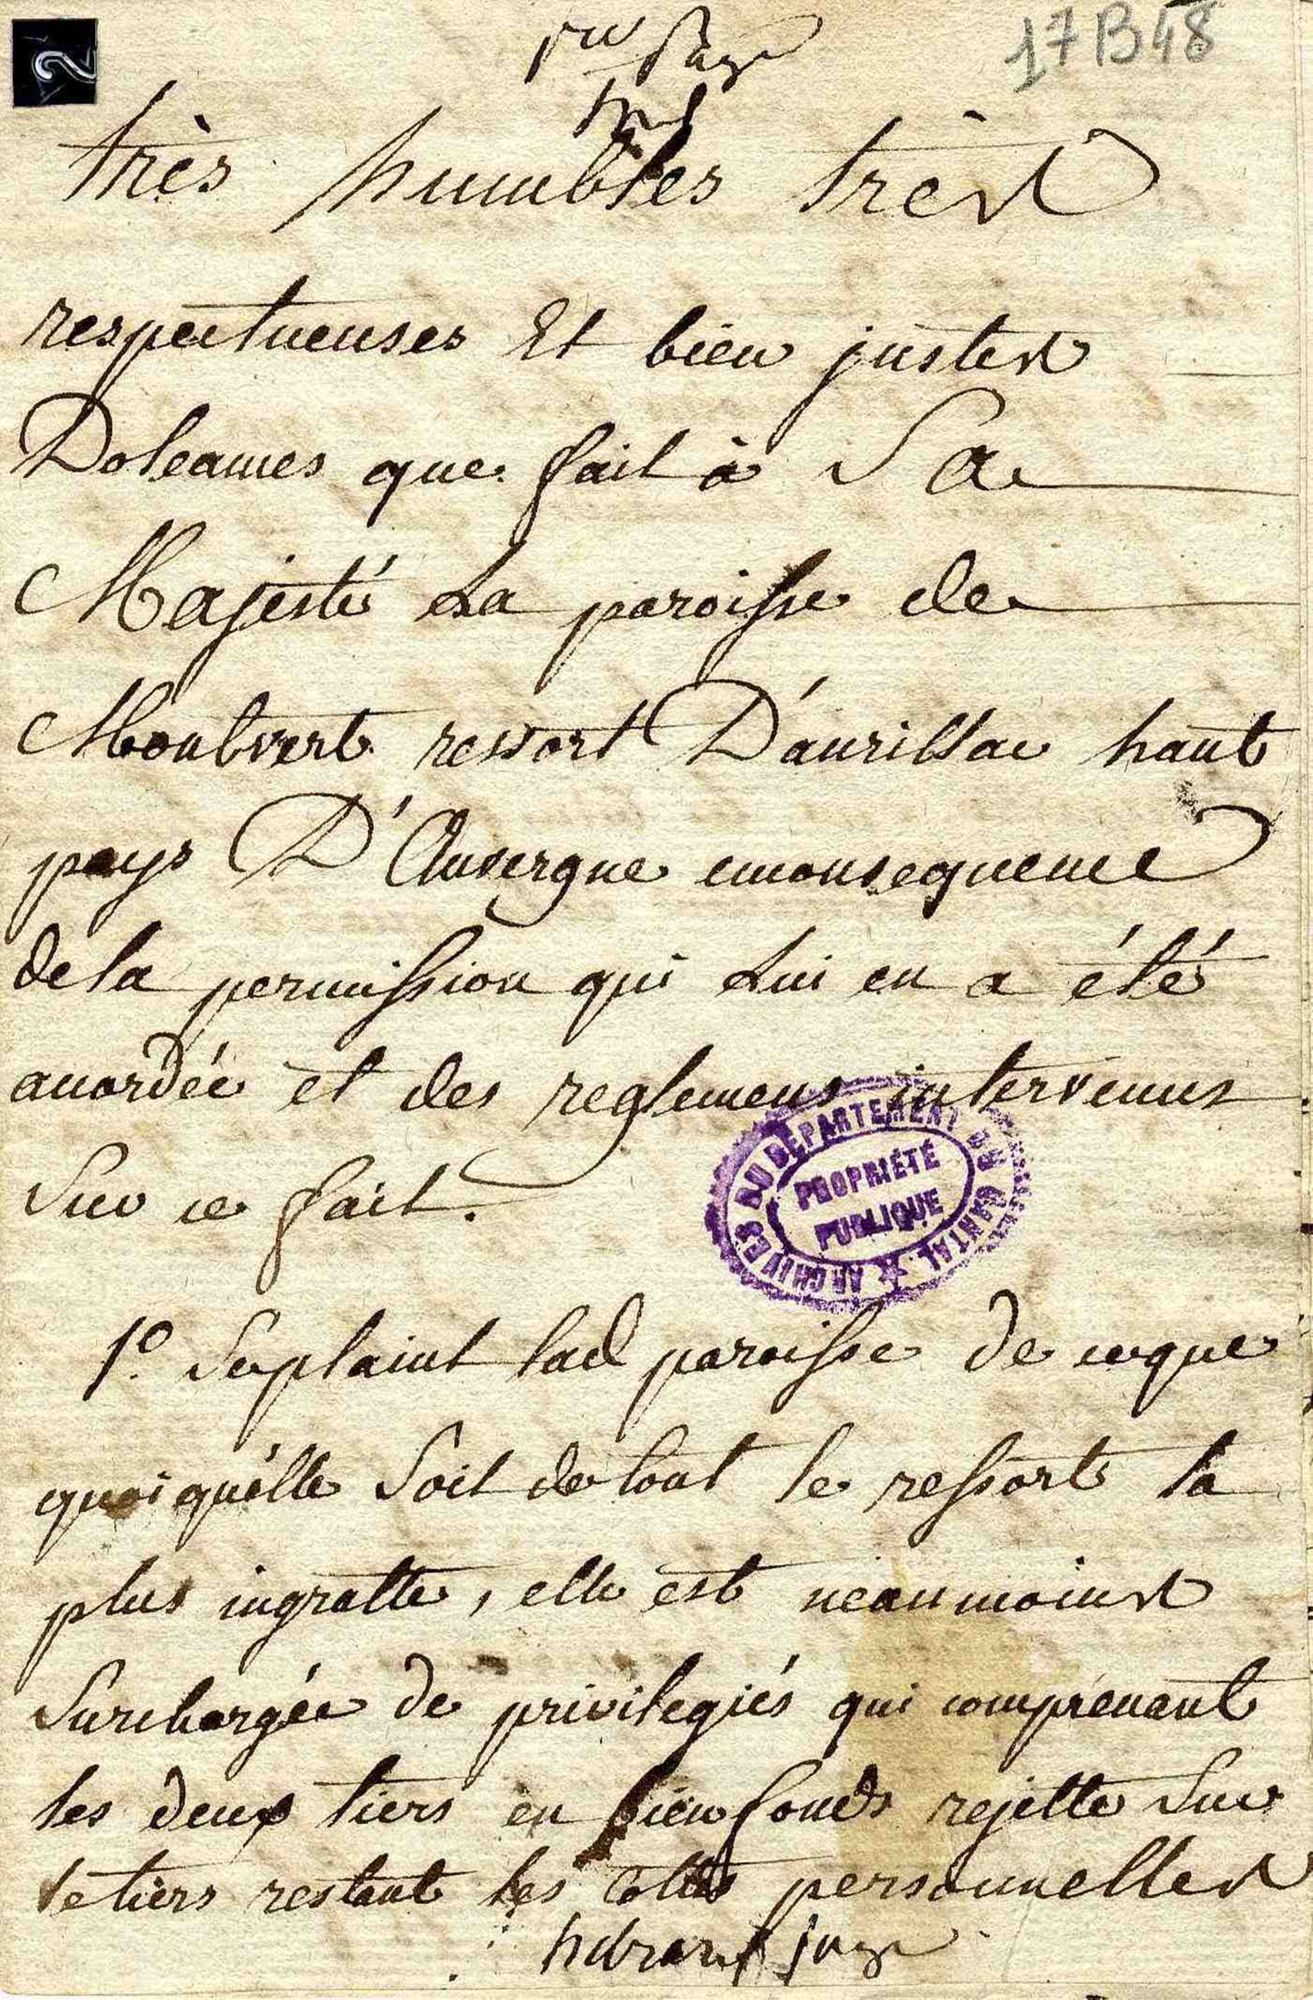 2
17 B 48
pre page
très humbles très
respectueuses Et bien justes
Doleances que fait à Sa
Majesté La paroisse de
Montvert ressort D'aurillac haut
pays D'Auvergne enconsequence
dela permission qui Lui en a été
accordée et des reglemens intervenus
Sur ce fait.
ARCHIVES DU DEPARTEMENT DU CANTAL
PROPRIÉTÉ
PUBLIQUE
1º. Seplaint lad paroisse de ceque
quoiquélle Soit detout le ressort la
plus ingratte, elle est neanmoins
Surchargée de privilegiés qui comprenant
les deux tiers en bien fonds rejette Sur
letiers restant les cottes personnelles
juge